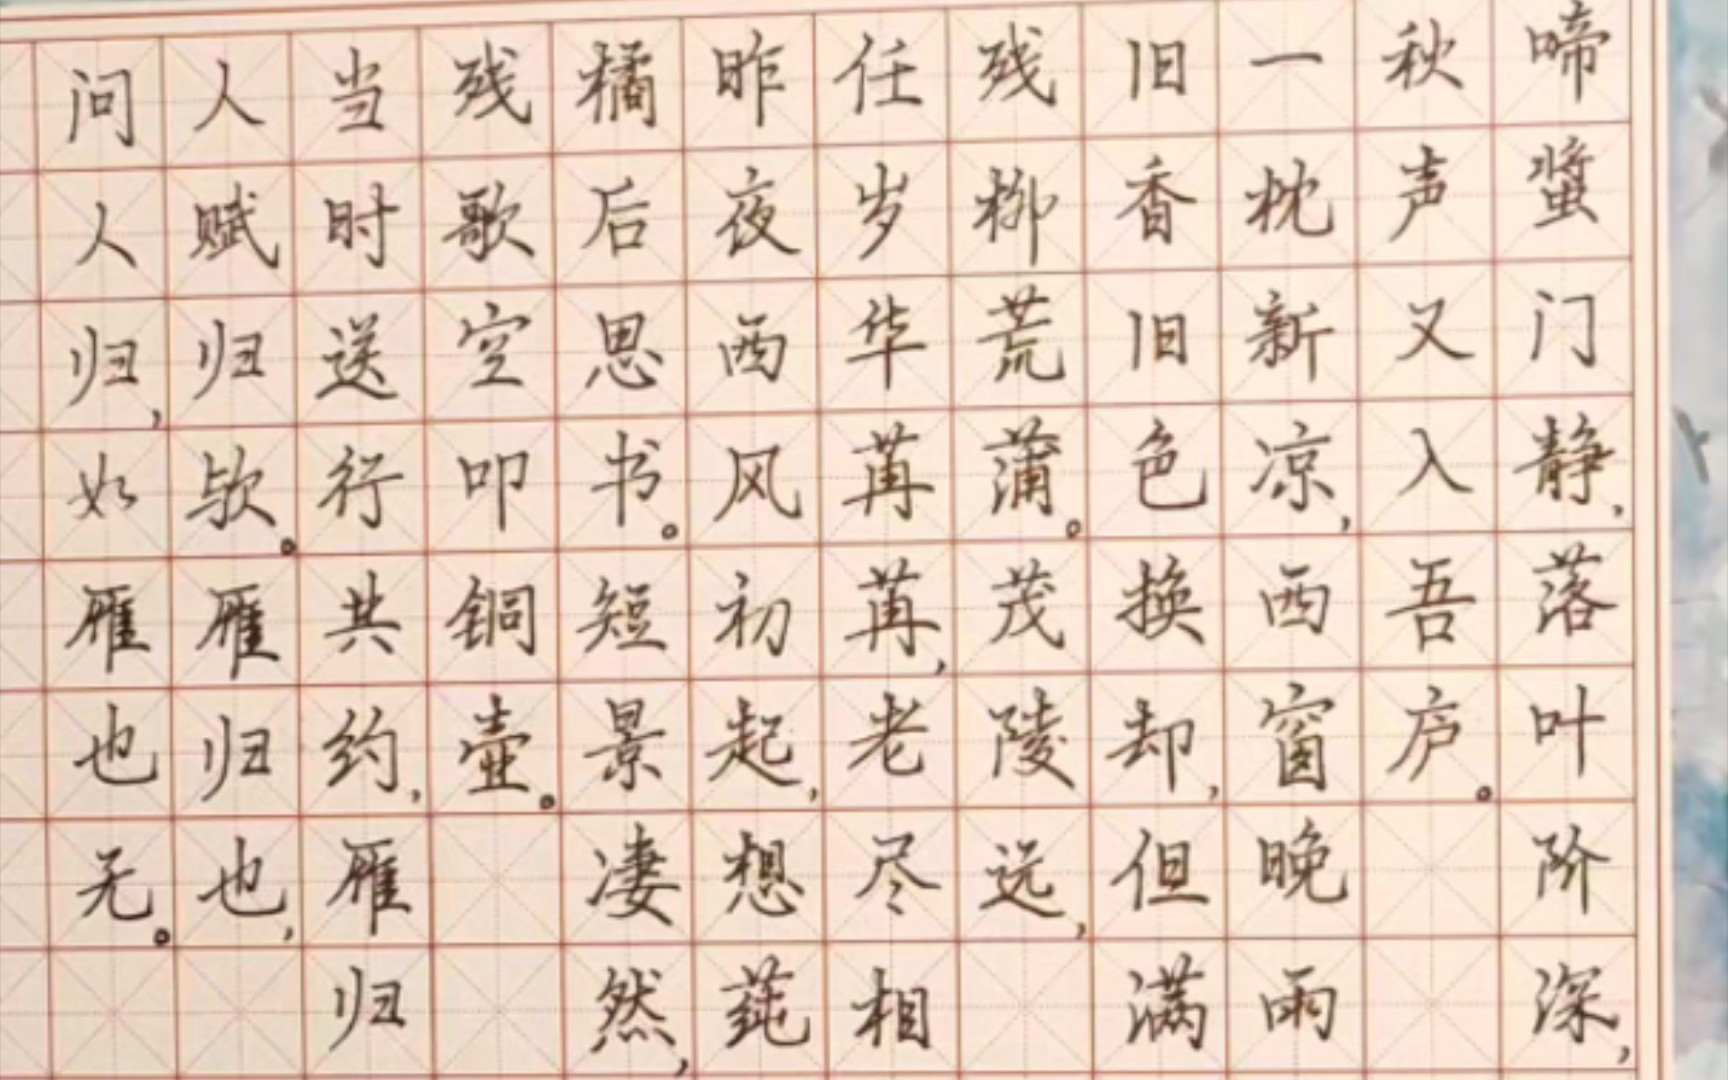 啼螀门静,落叶阶深,
秋声又入吾庐。
一枕新凉,西窗晚雨
旧香旧色换却,但满
残柳荒蒲。茂陵远,
任岁华苒苒,老尽相
昨夜西风初起,想莼
橘后思书。短景凄然,
残歌空叩铜壶。
当时送行共约,雁归
人赋归欤。雁归也,
问人归,如雁也无。